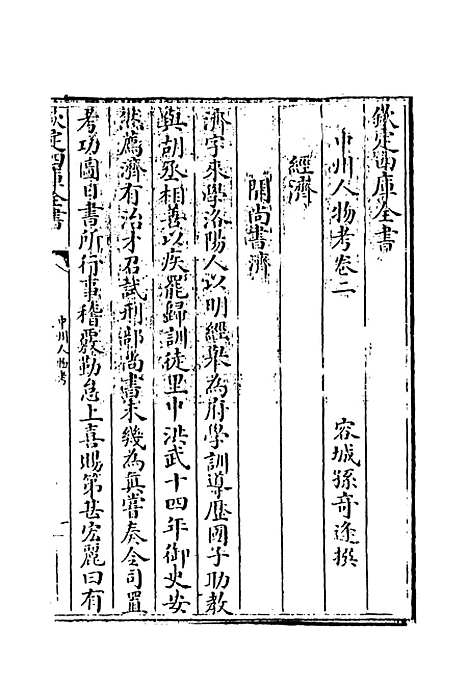 欽定四庫全書
中州人物考卷二
容城孫奇逢撰
經濟
開尚書濟
濟字來學洛陽人以明經舉為府學訓導歷國子助教
與胡丞相善以疾罷歸訓徒里中洪武十四年御史安
然薦濟有治才召試刑部尚書未幾為真嘗奏令司置
考功圖日書所行事稽覈勤怠上喜賜第甚宏麗曰有
欽定四庫全書
中州人物考
一